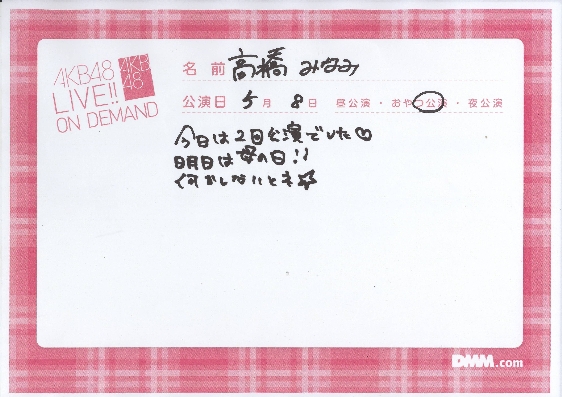 AKB48
LIVE!!
ON DEMAND
AKB
48
名前 高橋 みなみ
公演日 5月 8日 昼公演・おやつ公演・夜公演
今日は2回公演でした♡
明日は母の日!!
何かしないとネ☆
DMM.com